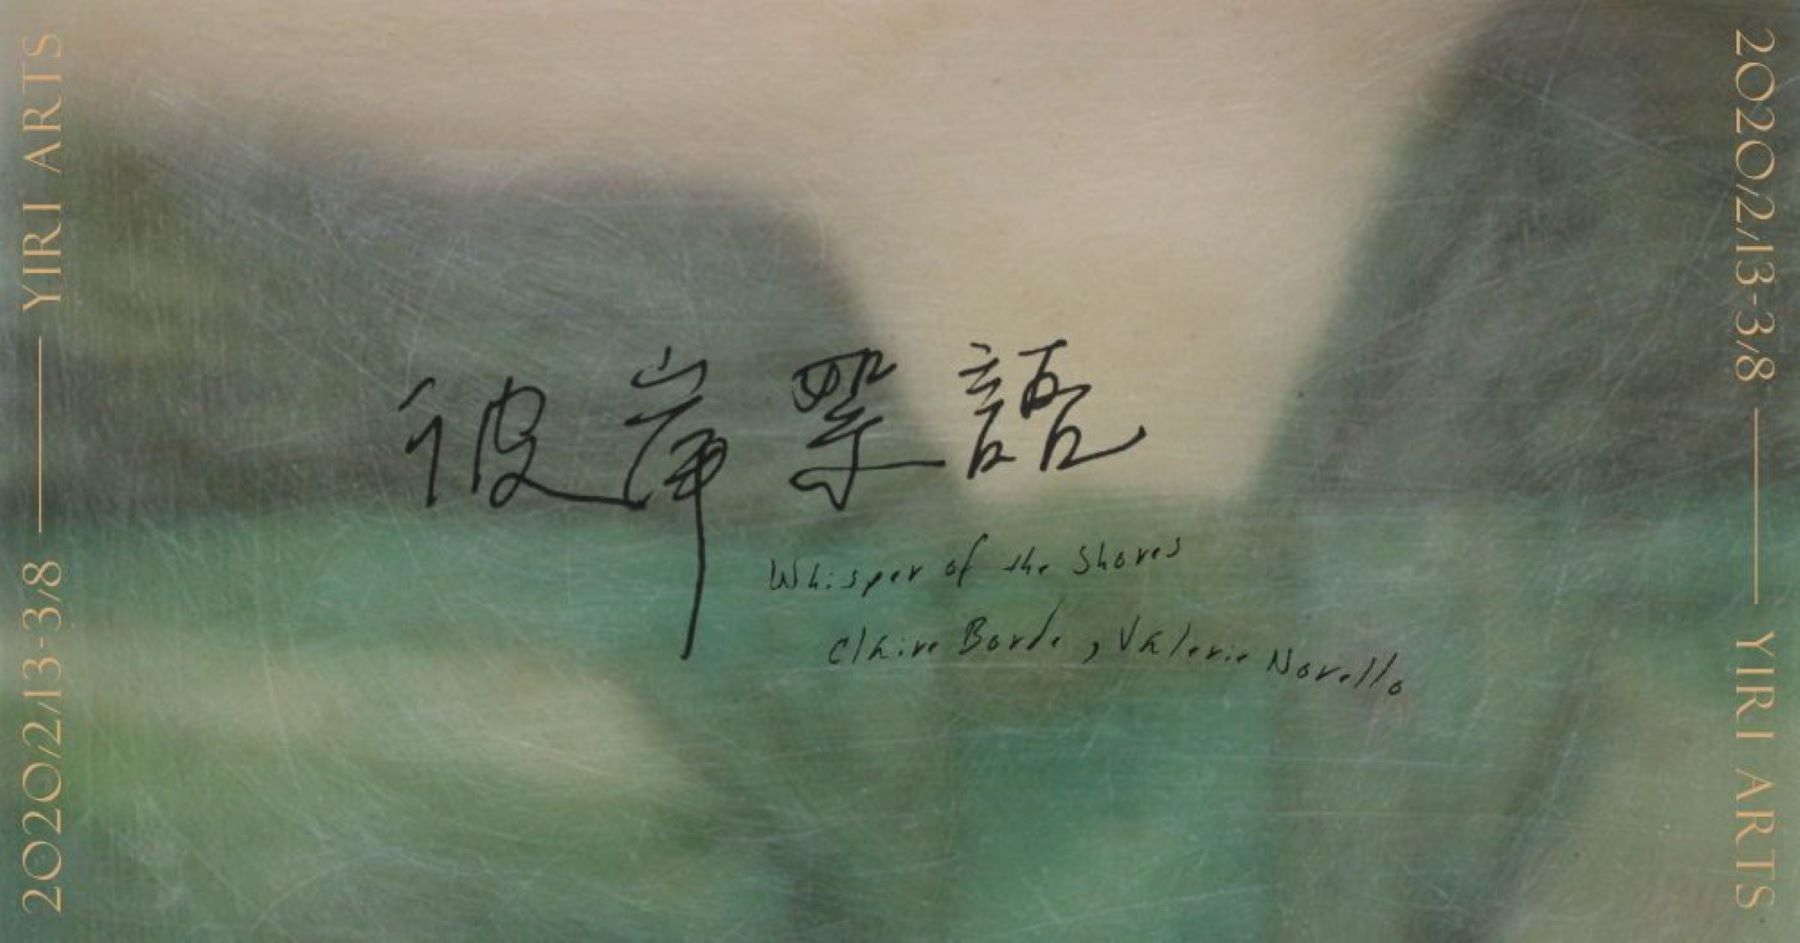 YIRI ARTS
2020/2/13-3/8
彼岸絮語
Whisper of the Shores
Claire Borde , Valerie Novello
2020/2/13-3/8
YIRI ARTS